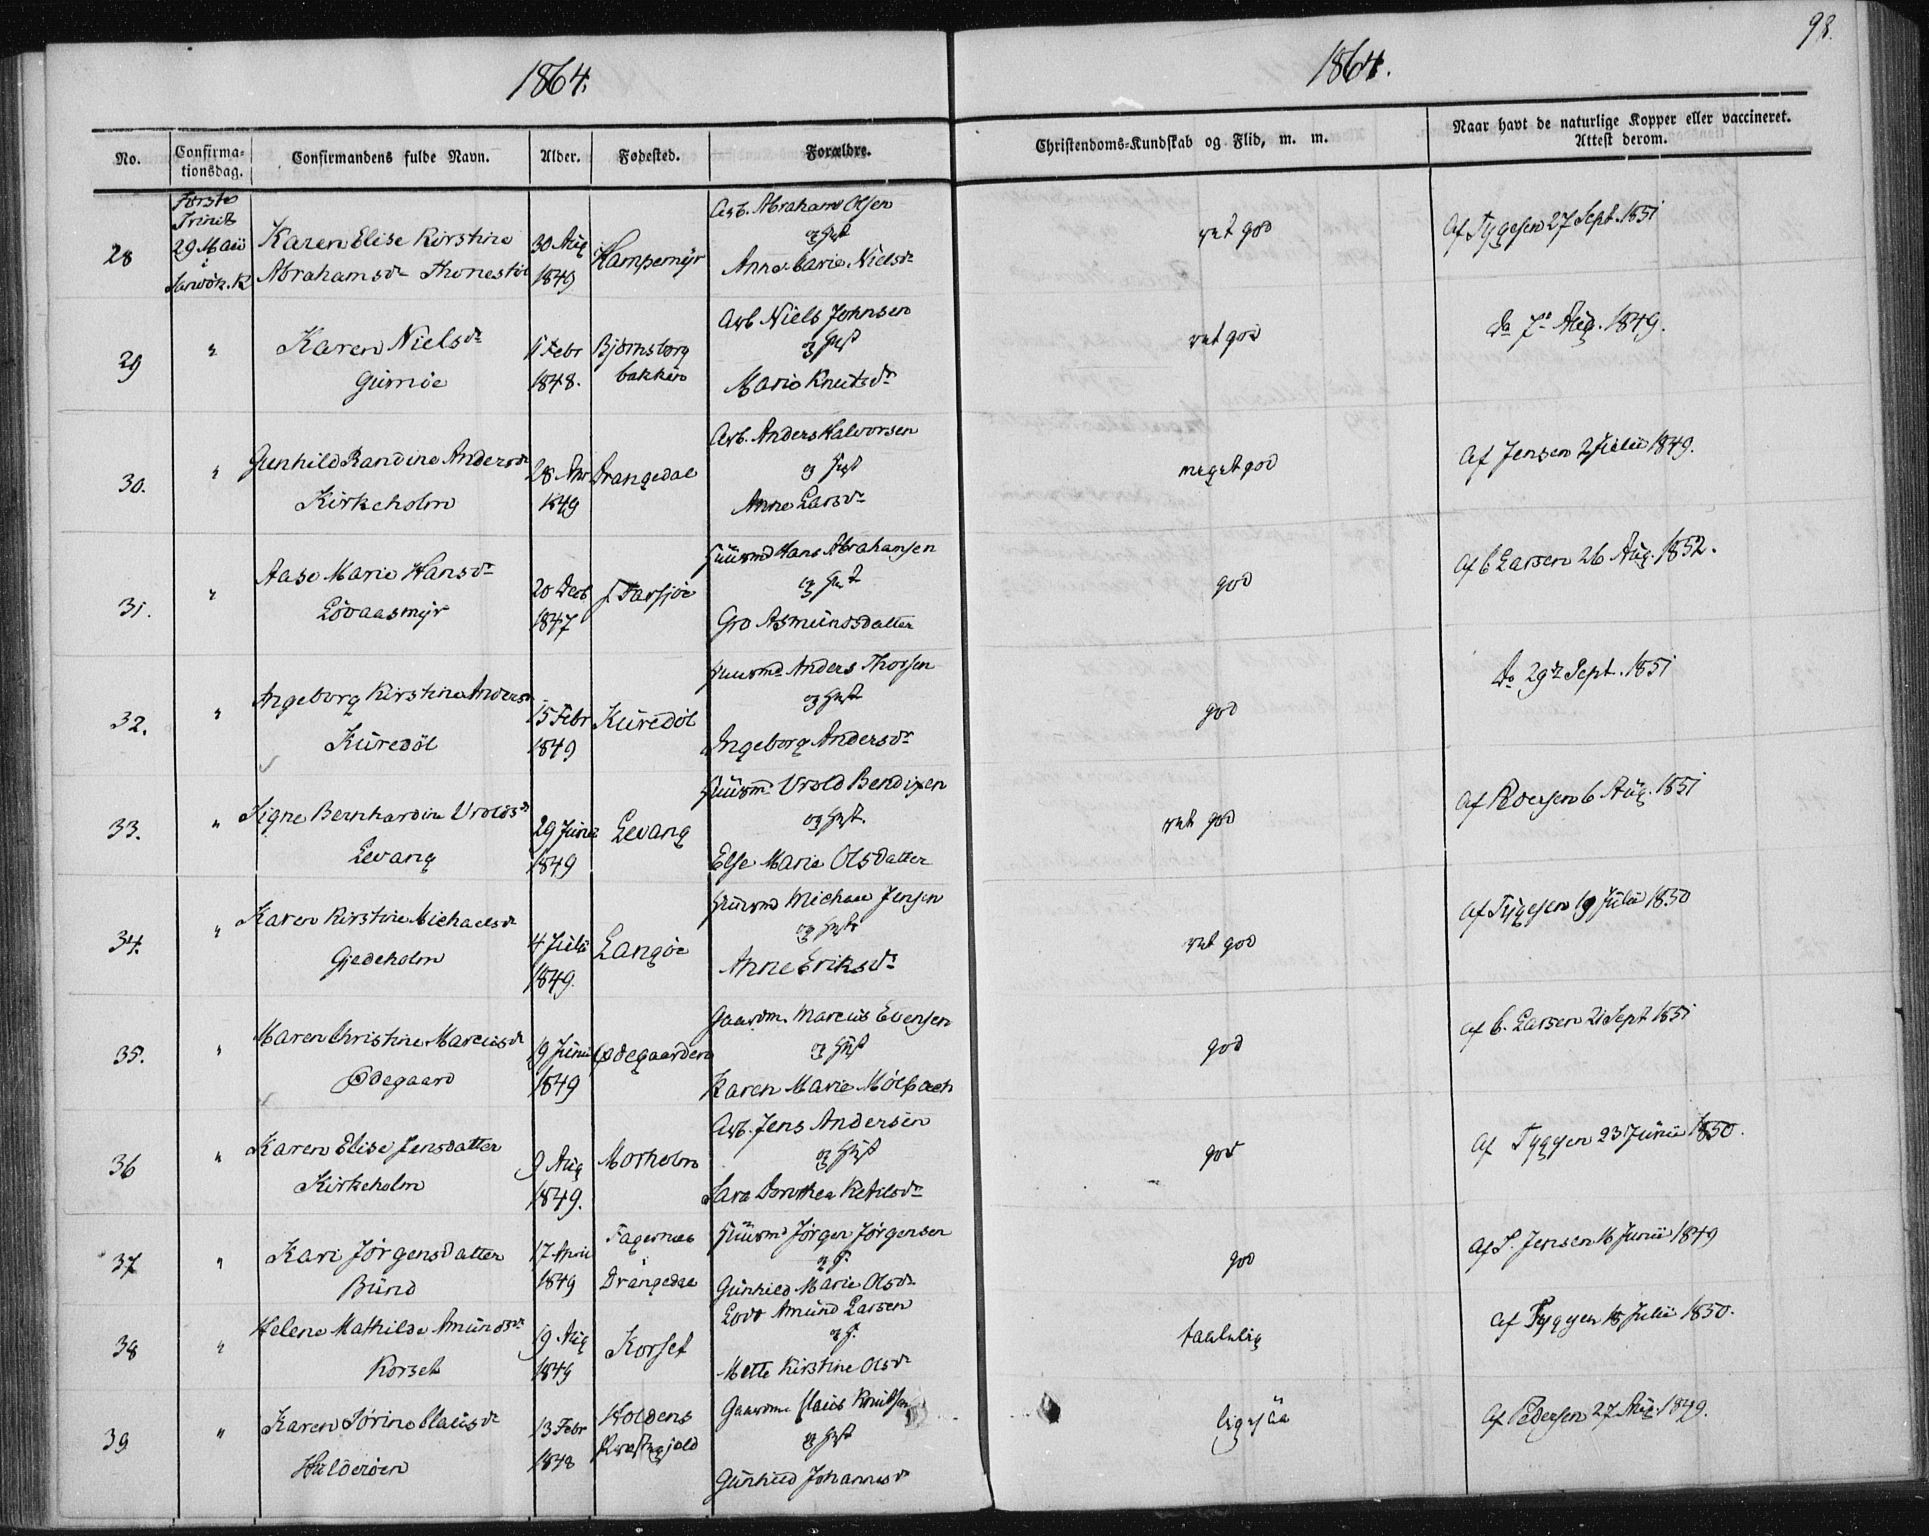 98.
1864.
1864.
No.
Confirma-
tionsdag.
Confirmandens fulde Navn.
Alder.
Fødested.
Forældre.
Christendoms-Kundskab og Flid, m. m.
Naar havt de naturlige Kopper eller vaccineret.
Attest derom.
28
Første
Trinit
29 Maii
i
K
Karen Elise Kirstine
Abrahamsdr
30 Aug
1849
Kampemyr
Arb. Abraham Olsen
og Hust
Anne Marie Nielsdr
ret god
Af Tygesen 27 Sept. 1851
29
"
Karen Nielsdr
Gumøe
1 Febr
1848.
Bjørnsborg
bakken
Arb Niels Johnsen
og Hust
Marie Knutsdr
ret god
Do 7de Aug. 1849.
30.
"
Gunhild Randine Andersdr
Kirkeholm
1849
Drangedal
Arb. Anders Halvorsen
og Hust
Anne Larsdr
meget god
Af Jensen 2 Julii 1849.
31.
"
Aase Marie Hansdr
Lovaasmyr
20 Decb
1847
Farsjøe
Huusmd Hans Abrahamsen
og Hust
Gro Asmundsdatter
god
Af C Larsen 26 Aug. 1852.
32.
"
Ingeborg Kirstine Andersdr
Kuredøl
15 Febr
1849
Kuredøl
Huusmd Anders Thorsen
og Hust
Ingeborg Andersdr
god
Do 29de Sept. 1851
33.
"
Signe Bernhardine Uroldsdr
Levang
29 Junii
1849
Levang
Huusmd Urold Bendixen
og Hust.
Else Marie Olsdatter
ret god
Af Pedersen 6 Aug. 1851
34.
"
Karen Kirstine Michaelsdr
Gjedeholm
4 Julii
1849.
Langøe
Huusmd Michael Jensen
og Hust
Anne Eriksdr
ret god
Af Tygesen 19 Julii 1850
35.
"
Maren Christine Marcusdr
Ødegaard
19 Junii
1849
Ødegaarden
Gaardm. Marcus Evensen
og Hust
Karen Marie Mølbach
god
Af C. Larsen 21 Sept 1851
36
"
Karen Elise Jensdatter
Kirkeholm
9 Aug
1849.
Morholm
Arb. Jens Andersen
og Hust
Sara Dorothea Ketilsdr
god
Af Tygesen 23 Junii 1850.
37
"
Kari Jørgensdatter
Bund
17 April
1849
Fagernes
Drangedal
Huusmd Jørgen Jørgensen
og H.
Gunhild Marie Olsdr
god
Af S. Jensen 16 Junii 1849
38
"
Helene Mathilde Amundsdr
Korset
19 Aug
1849
Korset
Lods Amund Larsen
og H.
Mette Kirstine Olsdr
taalelig
Af Tygesen 18 Julii 1850.
39
"
Karen Sørine Clausdr
13 Febr
1848
Holdens
Præstegjeld
Gaardm. Claus Knudsen
og Hust
Gunhild Johannesdr
ligesaa
Af Pedersen 27 Aug. 1849.